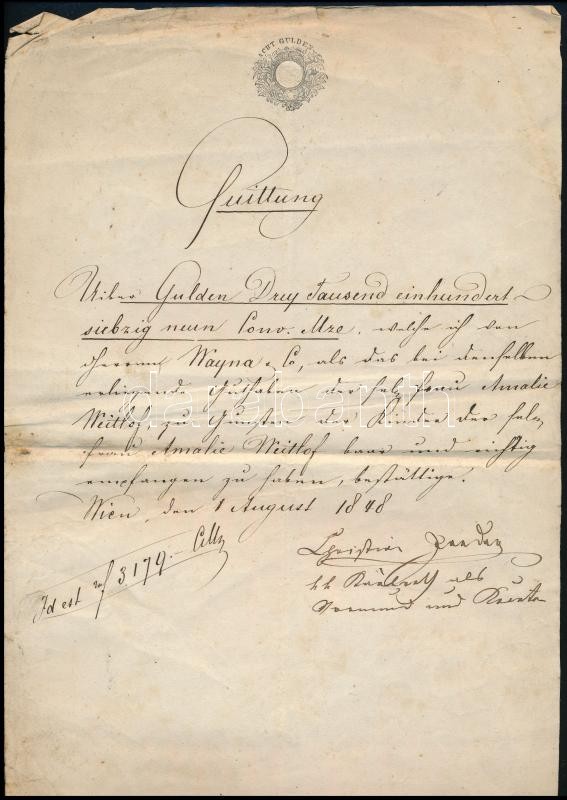 ACHT GULDEN
Quittung
Über Gulden Drey Tausend einhundert
siebzig neun Conv. Mze, welche ich von
Herrn Wayna & Co, als das bei denselben
erliegende Guthaben der sel. Frau Amalie
Weitlof zu Gunsten der Kinder der sel.
Frau Amalie Weitlof baar und richtig
empfangen zu haben, bestättige.
Wien, den 1 August 1848
Christian
Id est f 3179 CMz
kk als
Vormund und Kurator
darabanth